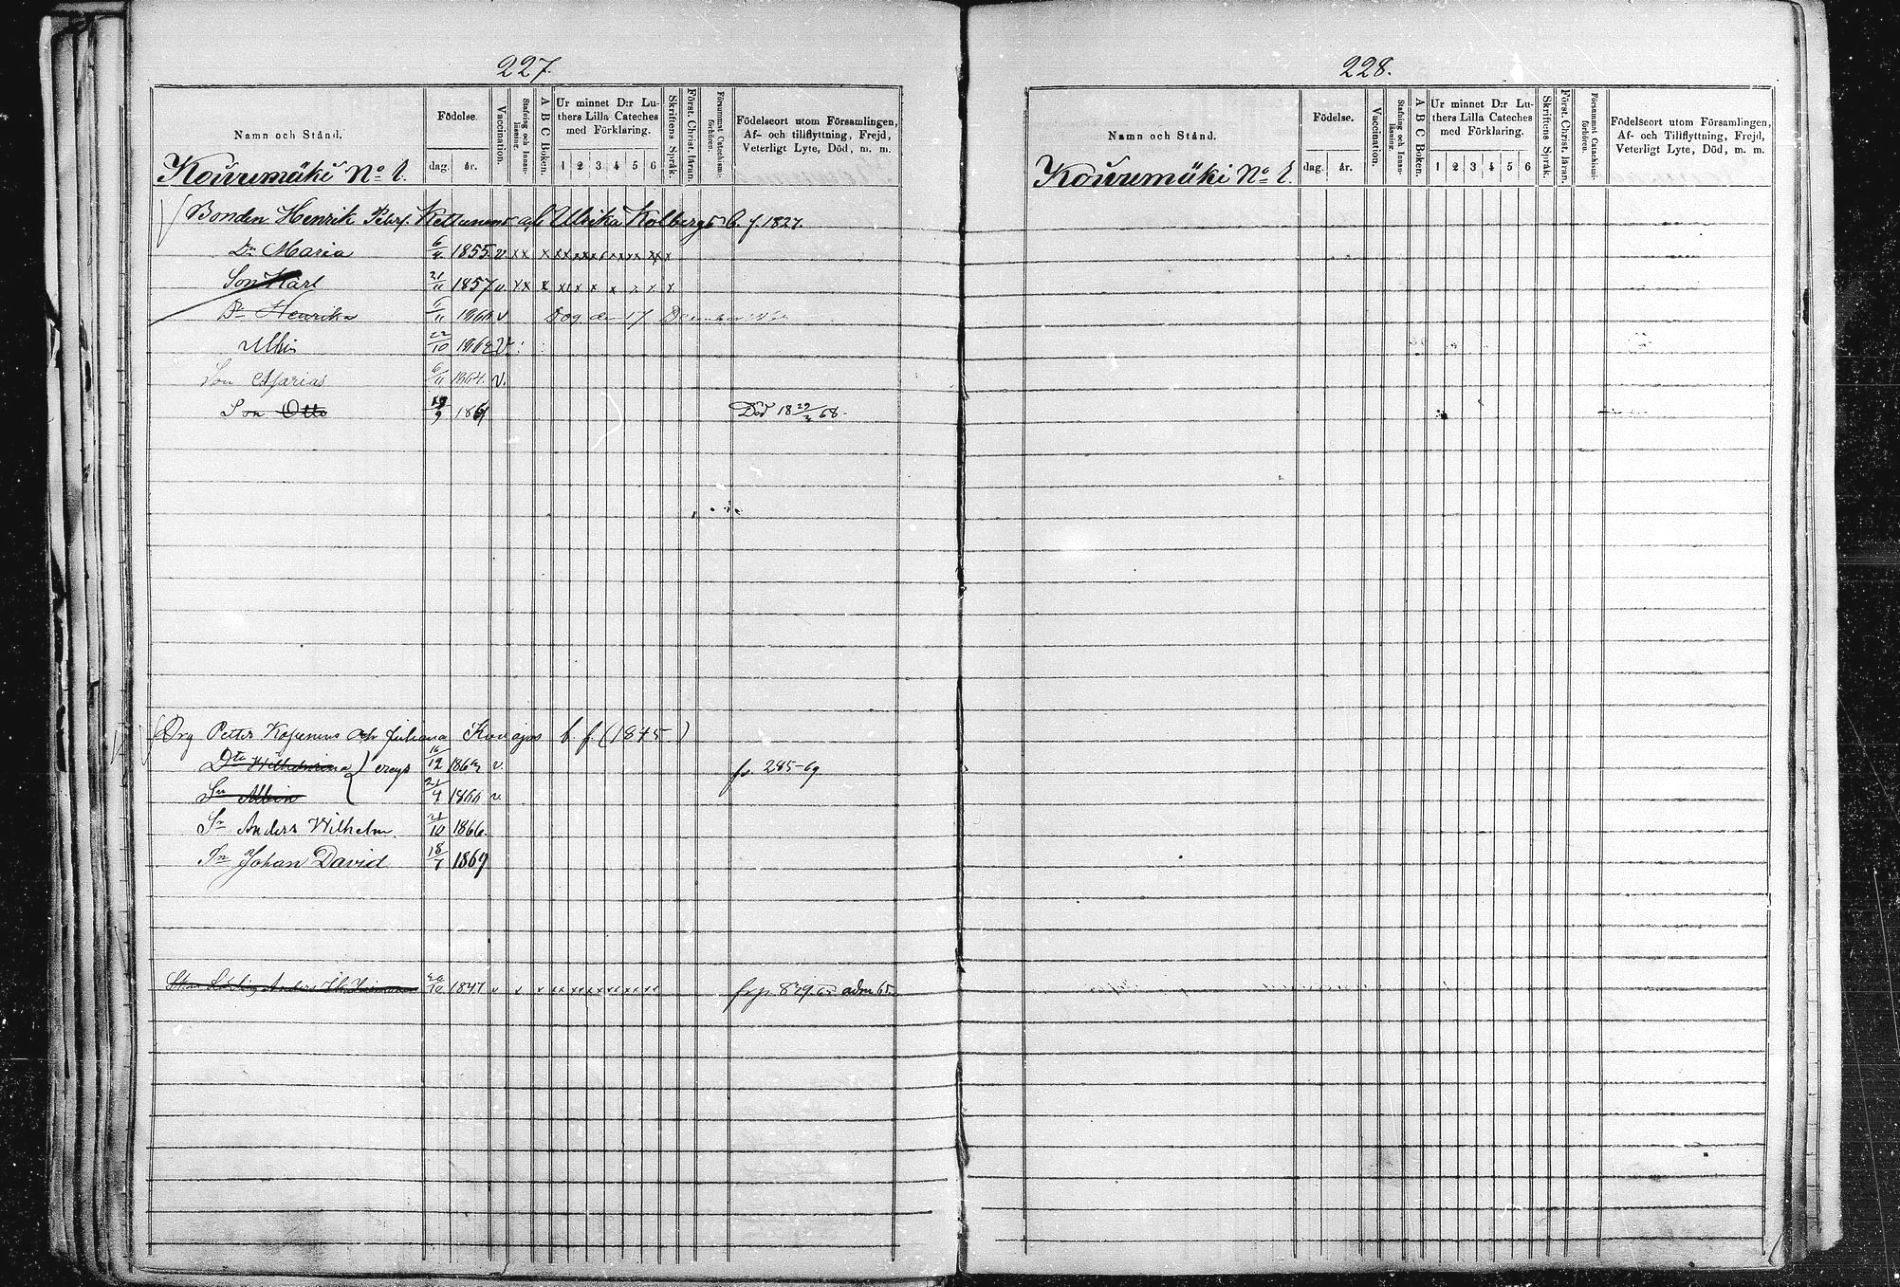 227.
Namn och Stånd.
Födelse.
dag. år.
Vaccination.
Stafning och Innan-läsning.
A B C Boken.
Ur minnet D:r Lu-
thers Lilla Cateches
med Förklaring.
1 2 3 4 5 6
Skriftens Språk.
Först. Christ. läran.
Försummat Catechismi-förhören.
Födelseort utom Församlingen,
Af- och tillflyttning, Frejd,
Veterligt Lyte, Död, m. m.
Koivumäki No 1.
Bonden Henrik Petersf. Kettunens och Ulrika Kolbergs b. f. 1827.
Dr Maria 1855 v x x x
Son Karl 21/11 1857 v x x x
Dr Henrika 1860 v Dog den 17 December
22/10 1862 v
Son 6/11 1864 v.
Son Otto 9 1867 Död 18 29/2 68.
Petter Koponens och Juliana b. f. (1845)
Dtr Wilhelmina 16/12 1862 v. fr. 285-69
Sn Albin 21/4 1860 v
Sn Anders Wilhelm 21/10 1866
Sn Johan David 18/7 1869
Anders 1847 v x x 839.65 adm 65.
228.
Namn och Stånd.
Födelse.
dag. år.
Vaccination.
Stafning och Innan-läsning.
A B C Boken.
Ur minnet D:r Lu-
thers Lilla Cateches
med Förklaring.
1 2 3 4 5 6
Skriftens Språk.
Först. Christ. läran.
Försummat Catechismi-förhören.
Födelseort utom Församlingen,
Af- och Tillflyttning, Frejd,
Veterligt Lyte, Död, m. m.
Koivumäki No 1.